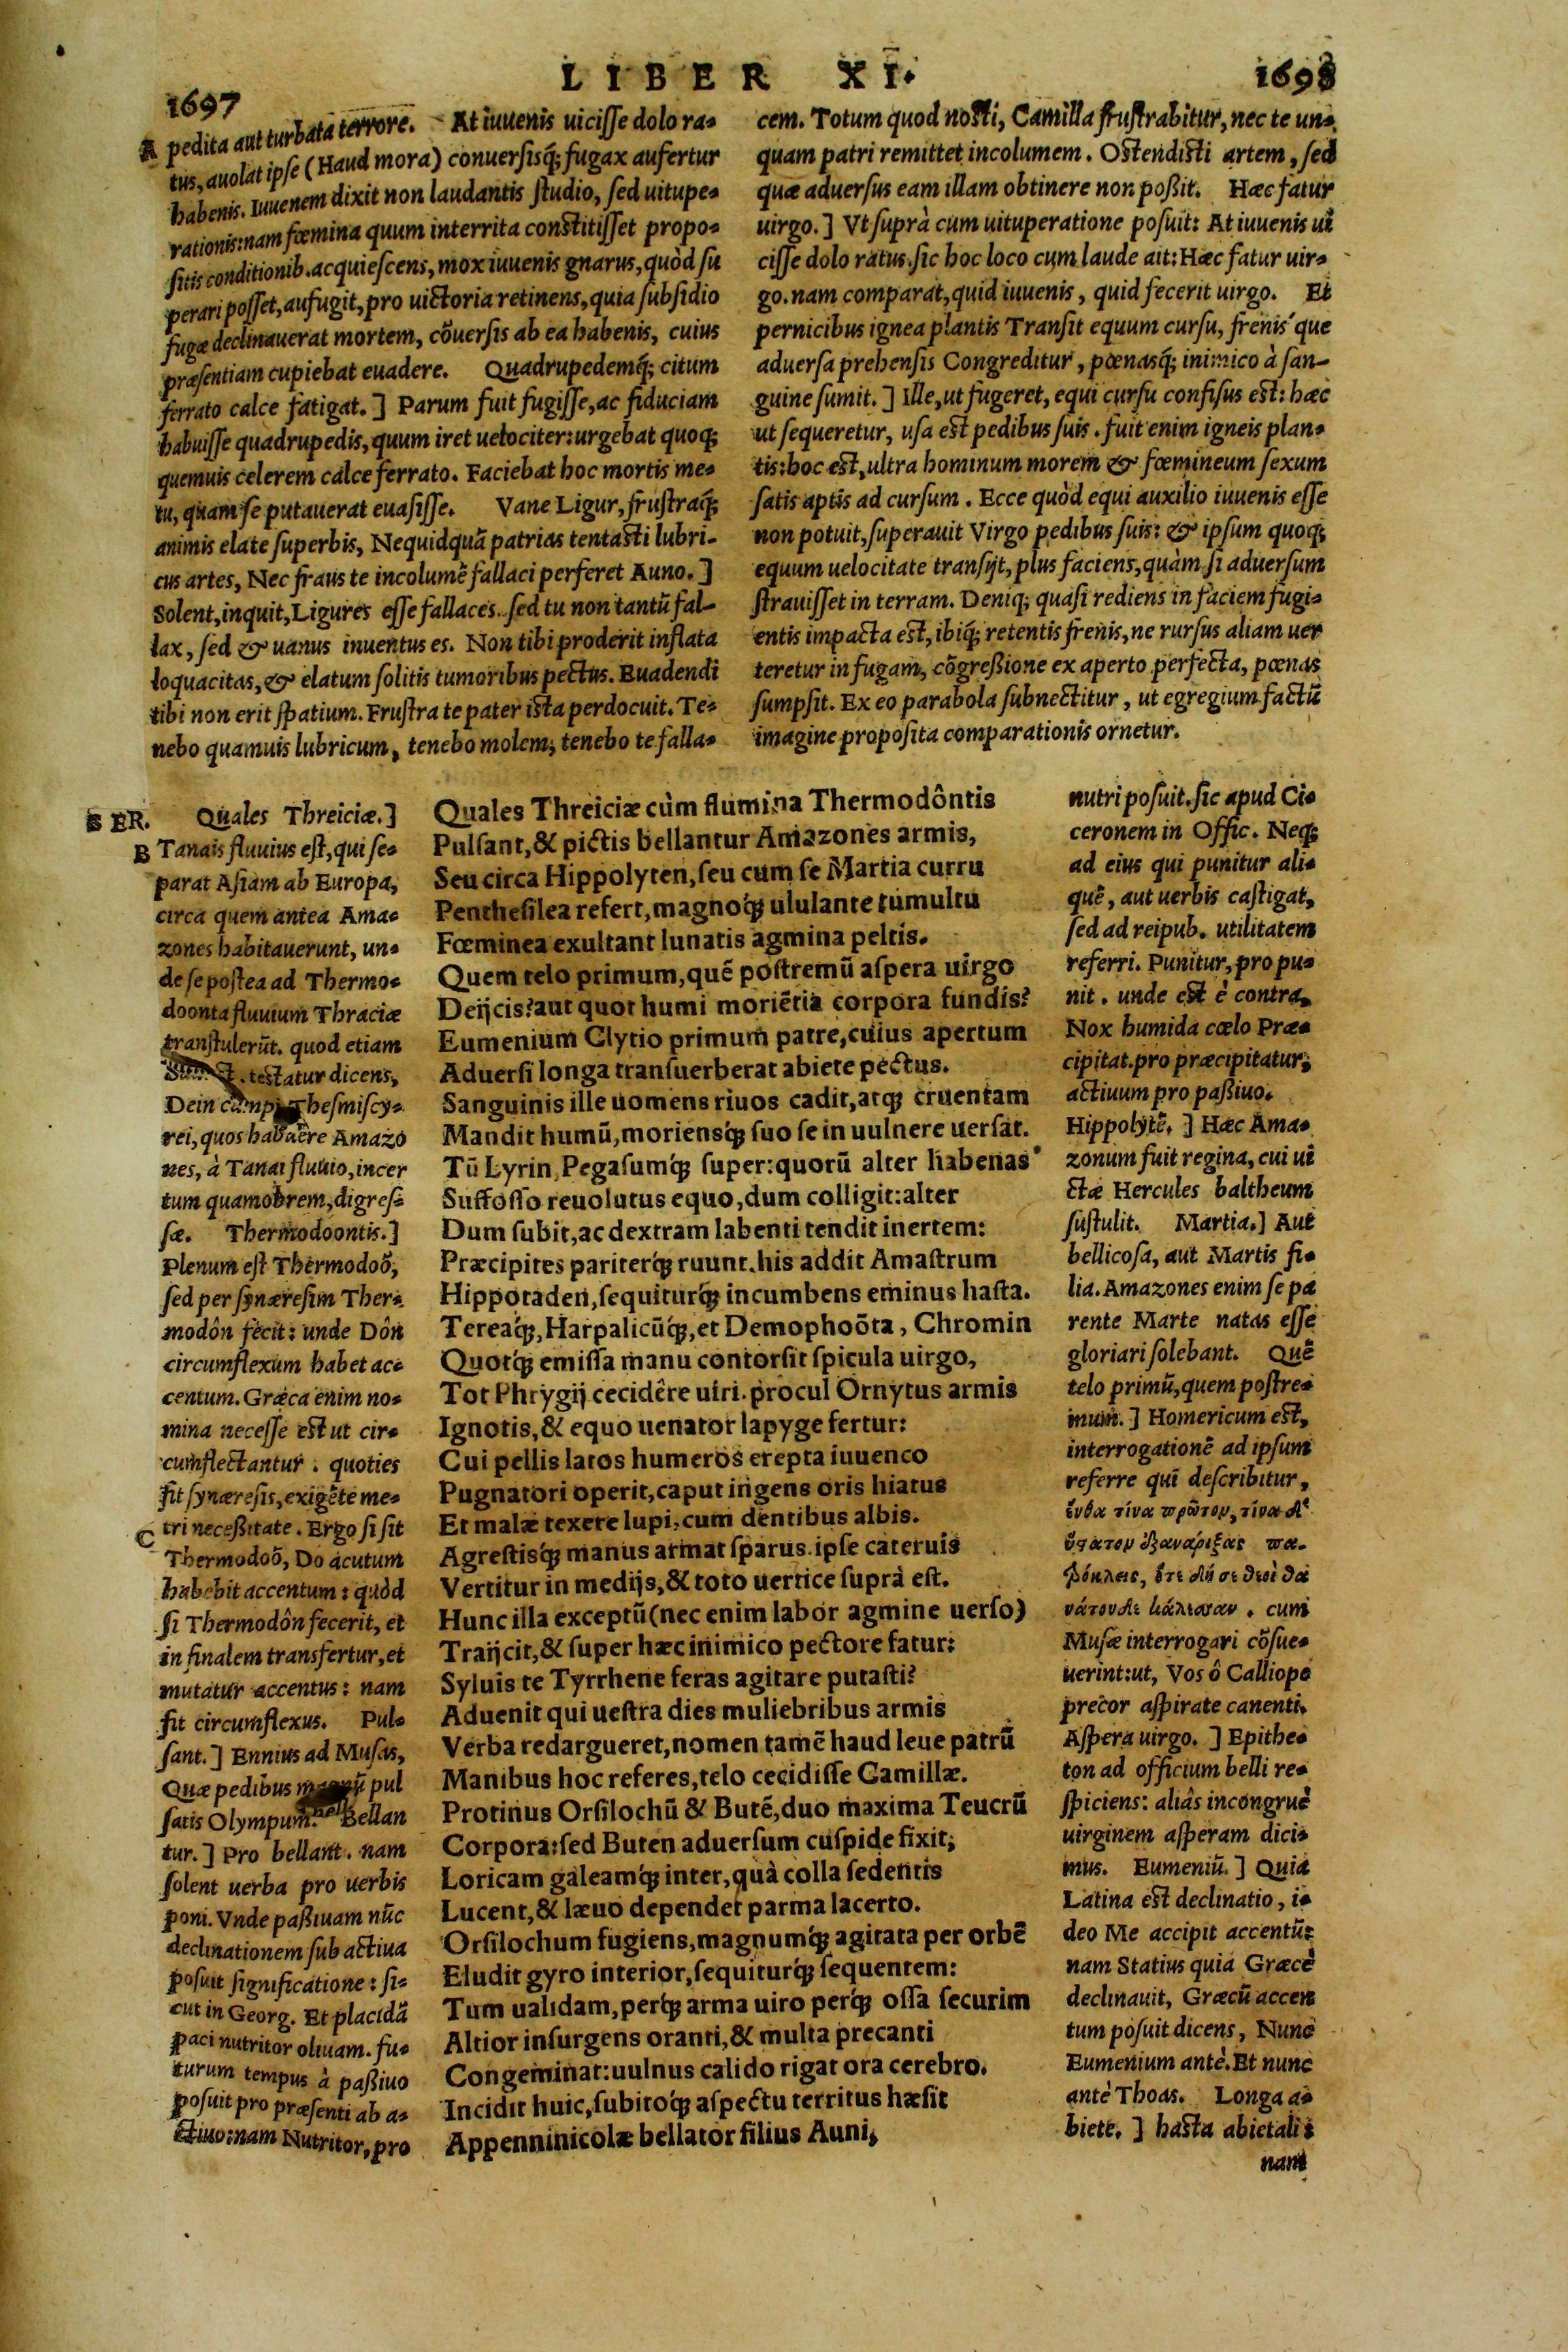 LIBER XI.
1697
1698
A pedita aut turbata terrore. At iuuenis uicisse dolo ra-
tus, auolat ipse (Haud mora) conuersisq́; fugax aufertur
habenis. Iuuenem dixit non laudantis studio, sed uitupe-
rationis: nam fœmina quum interrita constitisset propo-
sitis conditionib. acquiescens, mox iuuenis gnarus, quòd su
perari posset, aufugit, pro uictoria retinens, quia subsidio
fugæ declinauerat mortem, cõuersis ab ea habenis, cuius
præsentiam cupiebat euadere. Quadrupedemq́; citum
ferrato calce fatigat.] Parum fuit fugisse, ac fiduciam
habuisse quadrupedis, quum iret uelociter: urgebat quoq;
quemuis celerem calce ferrato. Faciebat hoc mortis me-
tu, quam se putauerat euasisse. Vane Ligur, frustraq́;
animis elate superbis, Nequidquã patrias tentasti lubri-
cus artes, Nec fraus te incolumẽ fallaci perferet Auno.]
Solent, inquit, Ligures esse fallaces. sed tu non tantũ fal-
lax, sed & uanus inuentus es. Non tibi proderit inflata
loquacitas, & elatum solitis tumoribus pectus. Euadendi
tibi non erit spatium. Frustra te pater ista perdocuit. Te-
nebo quamuis lubricum, tenebo molem; tenebo te falla-
cem. Totum quod nosti, Camilla frustrabitur, nec te un-
quam patri remittet incolumem. Ostendisti artem, sed
quæ aduersus eam illam obtinere non poßit. Hæc fatur
uirgo.] Vt suprà cum uituperatione posuit: At iuuenis ui
cisse dolo ratus. sic hoc loco cum laude ait: Hæc fatur uir-
go. nam comparat, quid iuuenis, quid fecerit uirgo. Et
pernicibus ignea plantis Transit equum cursu, frenis'que
aduersa prehensis Congreditur, pœnasq́; inimico à san-
guine sumit.] Ille, ut fugeret, equi cursu confisus est: hæc
ut sequeretur, usa est pedibus suis. fuit enim igneis plan-
tis: hoc est, ultra hominum morem & fœmineum sexum
satis aptis ad cursum. Ecce quòd equi auxilio iuuenis esse
non potuit, superauit Virgo pedibus suis: & ipsum quoq;
equum uelocitate transijt, plus faciens, quàm si aduersum
strauisset in terram. Deniq; quasi rediens in faciem fugi-
entis impacta est, ibiq́; retentis frenis, ne rursus aliam uer
teretur in fugam, cõgreßione ex aperto perfecta, pœnas
sumpsit. Ex eo parabola subnectitur, ut egregium factũ
imagine proposita comparationis ornetur.
SER. Quales Threiciæ.]
B Tanais fluuius est, qui se-
parat Asiam ab Europa,
circa quem antea Ama-
zones habitauerunt, un-
de se postea ad Thermo-
doonta fluuium Thraciæ
transtulerũt. quod etiam
testatur dicens,
Dein campi Thesmiscy-
rei, quos habuêre Amazo
nes, à Tanai fluuio, incer
tum quamobrem, digres-
sæ. Thermodoontis.]
Plenum est Thermodoõ,
sed per synæresim Ther-
modôn fecit: unde Dôn
circumflexum habet ac-
centum. Græca enim no-
mina necesse est ut cir-
cumflectantur. quoties
fit synæresis, exigẽte me-
C tri neceßitate. Ergo si sit
Thermodoõ, Do acutum
habebit accentum: quòd
si Thermodôn fecerit, et
in finalem transfertur, et
mutatur accentus: nam
fit circumflexus. Pul-
sant.] Ennius ad Musas,
Quæ pedibus magnũ pul
satis Olympum. Bellan
tur.] Pro bellant. nam
solent uerba pro uerbis
poni. Vnde paßiuam nũc
declinationem sub actiua
posuit significatione: si-
cut in Georg. Et placidã
paci nutritor oliuam. fu-
turum tempus à paßiuo
posuit pro præsenti ab a-
ctiuo: nam Nutritor, pro
Quales Threiciæ cùm flumina Thermodôntis
Pulsant, & pictis bellantur Amazones armis,
Seu circa Hippolyten, seu cum se Martia curru
Penthesilea refert, magnoq́; ululante tumultu
Fœminea exultant lunatis agmina peltis.
Quem telo primum, quẽ postremũ aspera uirgo
Deijcis? aut quot humi moriẽtia corpora fundis?
Eumenium Clytio primum patre, cuius apertum
Aduersi longa transuerberat abiete pectus.
Sanguinis ille uomens riuos cadit, atq; cruentam
Mandit humũ, moriensq́; suo se in uulnere uersat.
Tũ Lyrin Pegasumq́; super: quorũ alter habenas
Suffosso reuolutus equo, dum colligit: alter
Dum subit, ac dextram labenti tendit inertem:
Præcipites pariterq́; ruunt. his addit Amastrum
Hippotaden, sequiturq́; incumbens eminus hasta.
Tereaq́;, Harpalicũq́;, et Demophoõta, Chromin
Quotq́; emissa manu contorsit spicula uirgo,
Tot Phrygij cecidêre uiri. procul Ornytus armis
Ignotis, & equo uenator Iapyge fertur:
Cui pellis latos humeros erepta iuuenco
Pugnatori operit, caput ingens oris hiatus
Et malæ texere lupi, cum dentibus albis.
Agrestisq́; manus armat sparus. ipse cateruis
Vertitur in medijs, & toto uertice suprà est.
Hunc illa exceptũ (nec enim labor agmine uerso)
Traijcit, & super hæc inimico pectore fatur:
Syluis te Tyrrhene feras agitare putasti?
Aduenit qui uestra dies muliebribus armis
Verba redargueret, nomen tamẽ haud leue patrũ
Manibus hoc referes, telo cecidisse Camillæ.
Protinus Orsilochũ & Butẽ, duo maxima Teucrũ
Corpora: sed Buten aduersum cuspide fixit,
Loricam galeamq́; inter, quà colla sedentis
Lucent, & læuo dependet parma lacerto.
Orsilochum fugiens, magnumq́; agitata per orbẽ
Eludit gyro interior, sequiturq́; sequentem:
Tum ualidam, perq́; arma uiro perq́; ossa securim
Altior insurgens oranti, & multa precanti
Congeminat: uulnus calido rigat ora cerebro.
Incidit huic, subitoq́; aspectu territus hæsit
Appenninicolæ bellator filius Auni,
nutri posuit. sic apud Ci-
ceronem in Offic. Neq;
ad eius qui punitur ali-
quẽ, aut uerbis castigat,
sed ad reipub. utilitatem
referri. Punitur, pro pu-
nit. unde est è contra,
Nox humida cœlo Præ-
cipitat. pro præcipitatur,
actiuum pro paßiuo.
Hippolytẽ.] Hæc Ama-
zonum fuit regina, cui ui
ctæ Hercules baltheum
sustulit. Martia.] Aut
bellicosa, aut Martis fi-
lia. Amazones enim se pa
rente Marte natas esse
gloriari solebant. Quẽ
telo primũ, quem postre-
mum.] Homericum est,
interrogationẽ ad ipsum
referre qui describitur,
ἔνθα τίνα πρῶτον, τίνα δ'
ὕστατον ἐξανάριξας πα-
τρόκλεις, ὅτε δή σε θεοὶ θά
νάτονδε κάλεσσαν. cum
Musæ interrogari cõsue-
uerint: ut, Vos ô Calliope
precor aspirate canenti.
Aspera uirgo.] Epithe-
ton ad officium belli re-
spiciens: aliâs incongruè
uirginem asperam dici-
mus. Eumeniũ.] Quia
Latina est declinatio, i-
deo Me accipit accentũ:
nam Statius quia Græcè
declinauit, Græcũ accen
tum posuit dicens, Nunc
Eumenium antè. Et nunc
antè Thoas. Longa a-
biete.] hasta abietali:
nam